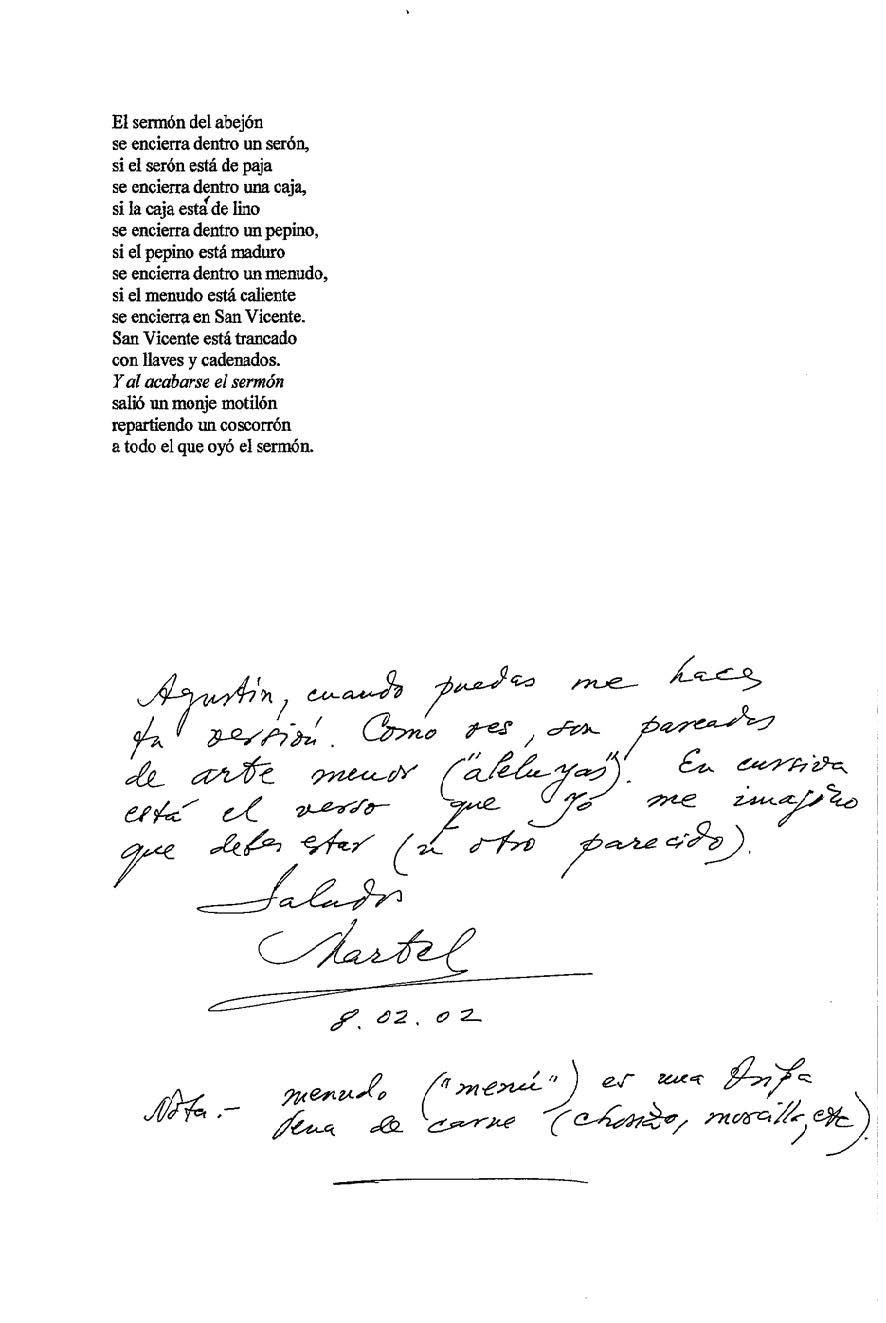 El sermón del abejón
se encierra dentro un serón,
si el serón está de paja
se encierra dentro una caja,
si la caja está de lino
se encierra dentro un pepino,
si el pepino está maduro
se encierra dentro un menudo,
si el menudo está caliente
se encierra en San Vicente.
San Vicente está trancado
con llaves y cadenados.
Y al acabarse el sermón
salió un monje motilón
repartiendo un coscorrón
a todo el que oyó el sermón.
Agustín, cuando puedas me haces
tu versión. Como ves, son pareados
de arte menor ("aleluyas"). En cursiva
está el verso que yo me imagino
que debe estar (u otro parecido).
Saludos
Martel
8.02.02
Nota.- menudo ("menú") es una tripa
llena de carne (chorizo, morcilla, etc).